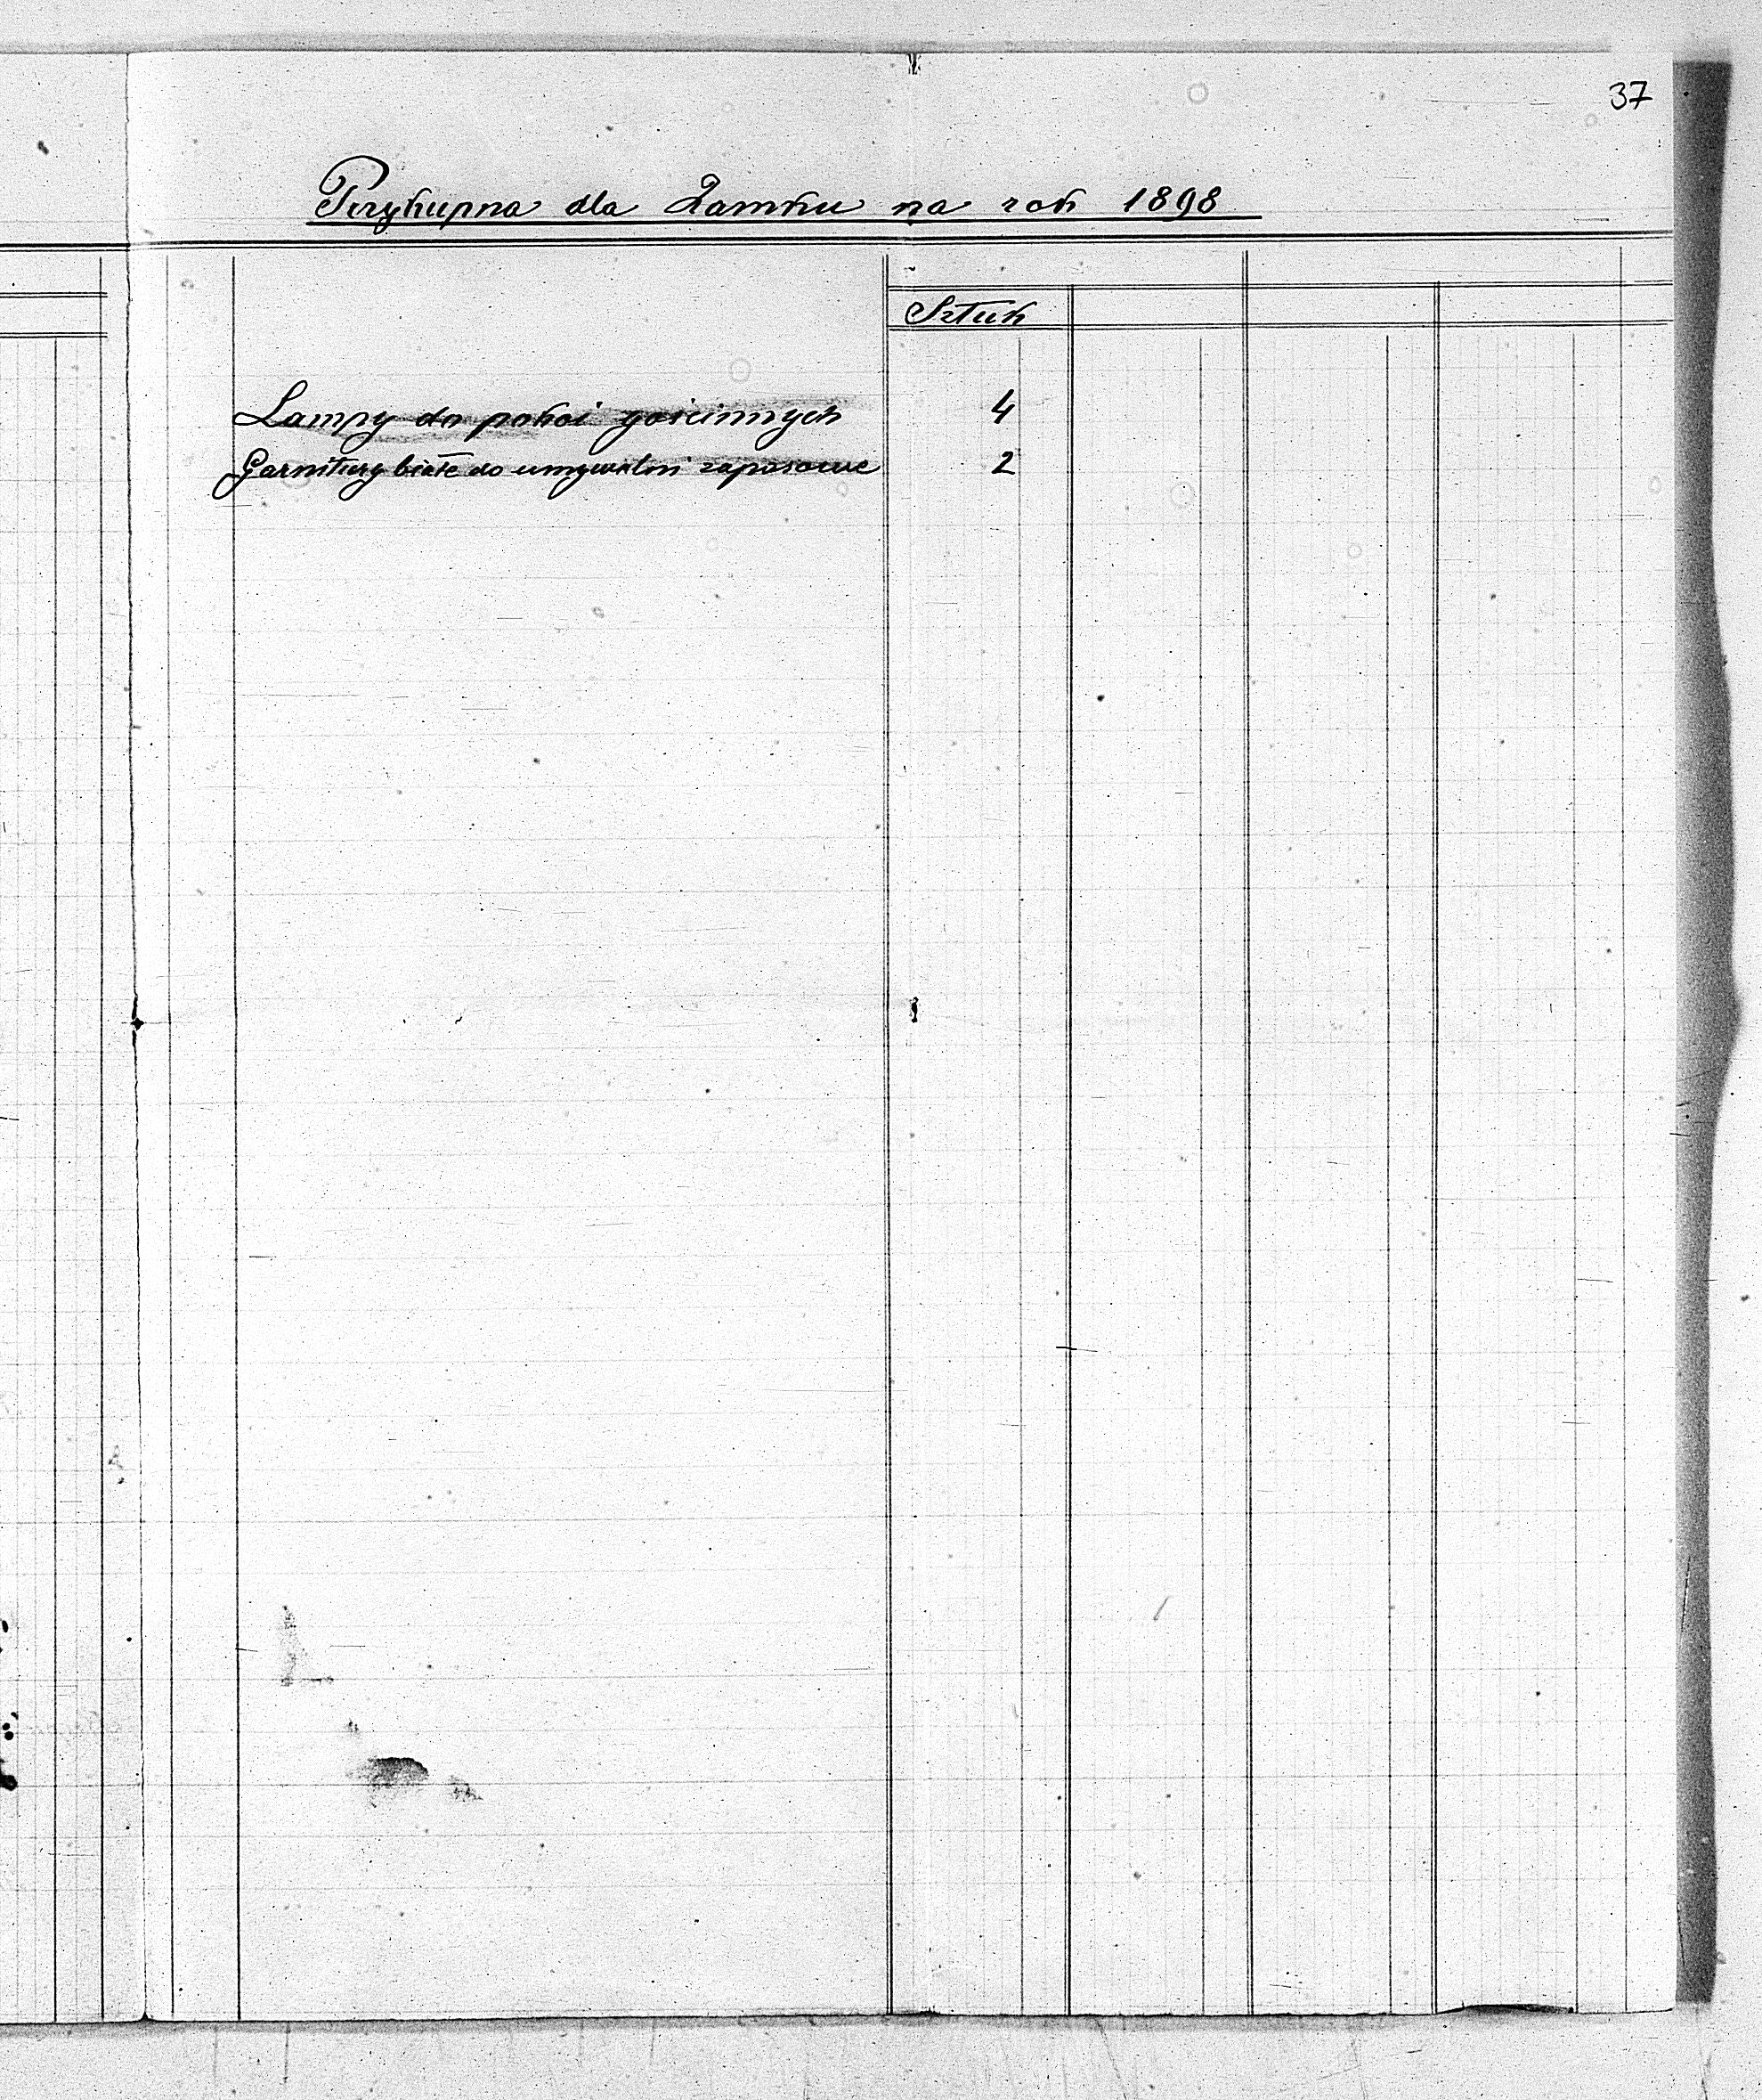 37
Przykupna dla Zamku na rok 1898
Sztuk
Lampy do pokoi gościnnych 4
Garnitury białe do umywalni zapasowe 2